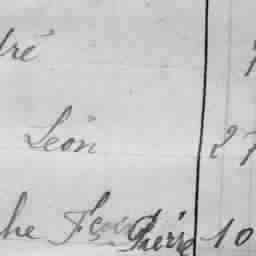 dré 7
Léon 27
he Pierre 10